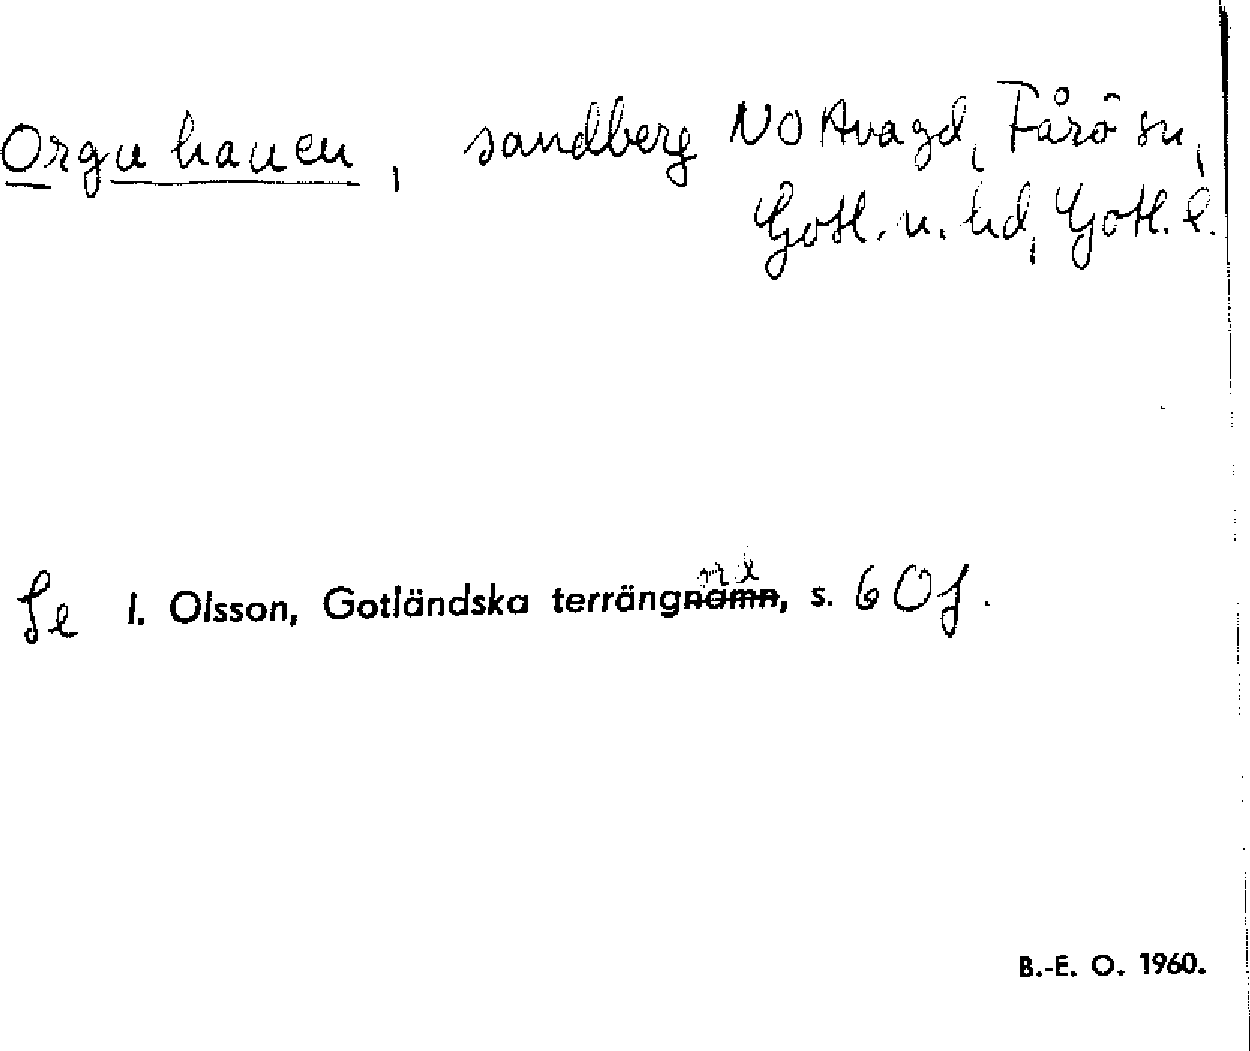 Orgu hauen, sandberg NO Ava gd, Fårö sn,
Gotl. n. hd, Gotl. l.
Se I. Olsson, Gotländska terrängnamn, s. 60 f.
B.-E. O. 1960.